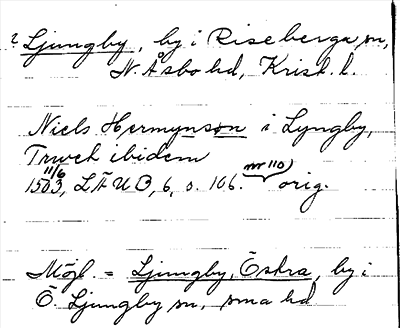 ? Ljungby, by i Riseberga sn,
N. Åsbo hd, Krist. l.
Niels Hermynson i Lyngby,
Trwels ibidem
11/6 nr 110)
1503, LÄUB, 6, s. 106. orig.
Mögl. = Ljungby, Östra, by i
Ö. Ljungby sn, sma hd